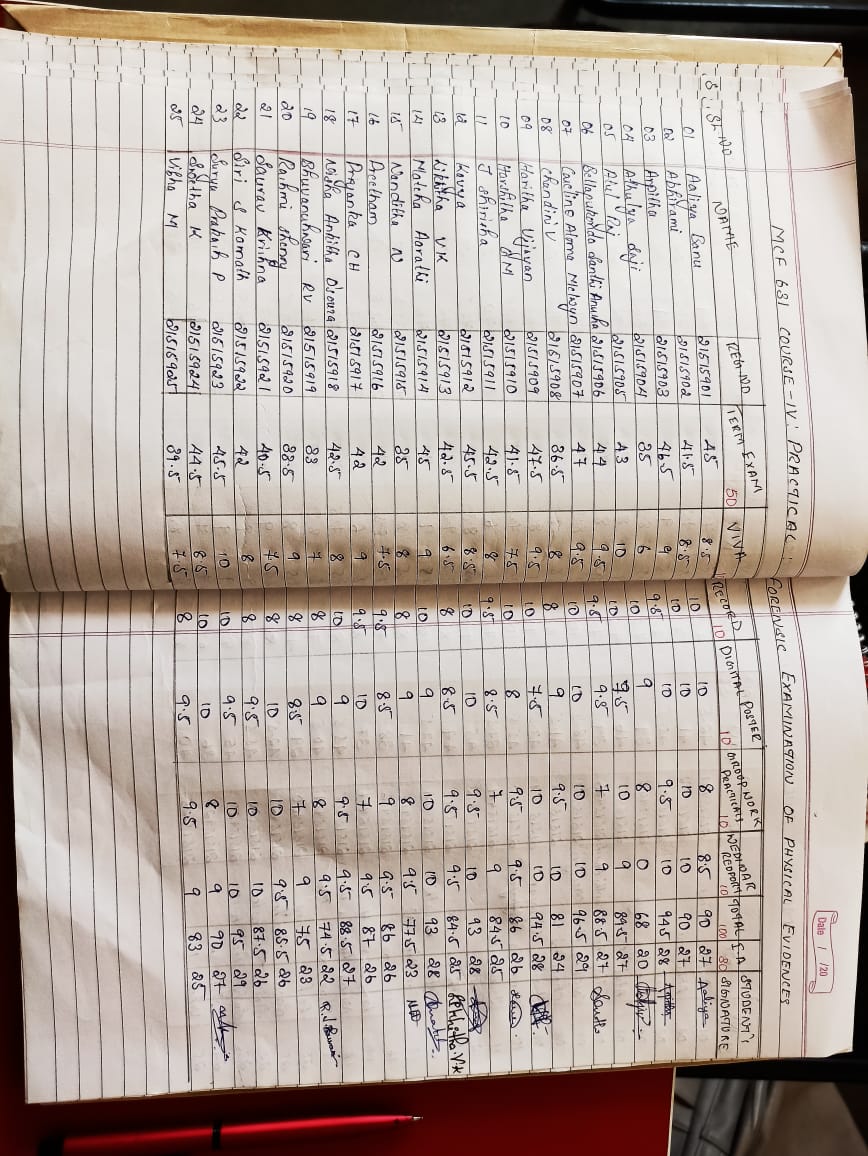 Date / /20
MCF 631 COURSE-IV: PRACTICAL: FORENSIC EXAMINATION OF PHYSICAL EVIDENCES
SL NO NAME REG.NO TERM EXAM 50 VIVA RECORD 10 DIGITAL POSTER 10 GROUP WORK PRACTICALS 10 WEBINAR REPORT 10 TOTAL 100 I.A 30 STUDENT'S SIGNATURE
01 Aaliya Banu 21515901 45 8.5 10 10 8 8.5 90 27 Aaliya
02 Abhirami 21515902 41.5 8.5 10 10 10 10 90 27
03 Arpitha 21515903 46.5 9 9.5 10 9.5 10 94.5 28
04 Athulya Saji 21515904 35 6 10 9 8 0 68 20
05 Atul Raj 21515905 43 10 10 7.5 10 9 89.5 27
06 Bellapukonda Santhi Anusha 21515906 44 9.5 9.5 9.5 7 9 88.5 27
07 Caroline Aloma Melwyn 21515907 47 9.5 10 10 10 10 96.5 29
08 Chandini V 21515908 36.5 8 8 9 9.5 10 81 24
09 Haritha Vijayan 21515909 47.5 9.5 10 7.5 10 10 94.5 28
10 Harshitha AM 21515910 41.5 7.5 10 8 9.5 9.5 86 26
11 J Shirisha 21515911 42.5 8 9.5 8.5 7 9 84.5 25
12 Kavya 21515912 45.5 8.5 10 10 9.5 10 93 28
13 Likhitha VK 21515913 42.5 6.5 8 8.5 9.5 9.5 84.5 25 Likhitha.V.K
14 Matcha Aarathi 21515914 45 9 10 9 10 10 93 28
15 Nanditha N 21515915 35 8 8 9 8 9.5 77.5 23
16 Preetham 21515916 42 7.5 9.5 8.5 9 9.5 86 26
17 Priyanka CH 21515917 42 9 9.5 10 7 9.5 87 26
18 Nisha Ankitha D'souza 21515918 42.5 8 10 9 9.5 9.5 88.5 27
19 Bhuvaneshwari RV 21515919 33 7 8 9 8 9.5 74.5 22
20 Rashmi Shenoy 21515920 33.5 9 8 8.5 7 9 75 23
21 Saurav Krishna 21515921 40.5 7.5 8 10 10 9.5 85.5 26
22 Siri S Kamath 21515922 42 8 8 9.5 10 10 87.5 26
23 Surya Prakash P 21515923 45.5 10 10 9.5 10 10 95 29
24 Swetha K 21515924 44.5 8.5 10 10 8 9 90 27
25 Vibha M 21515925 39.5 7.5 8 9.5 9.5 9 83 25